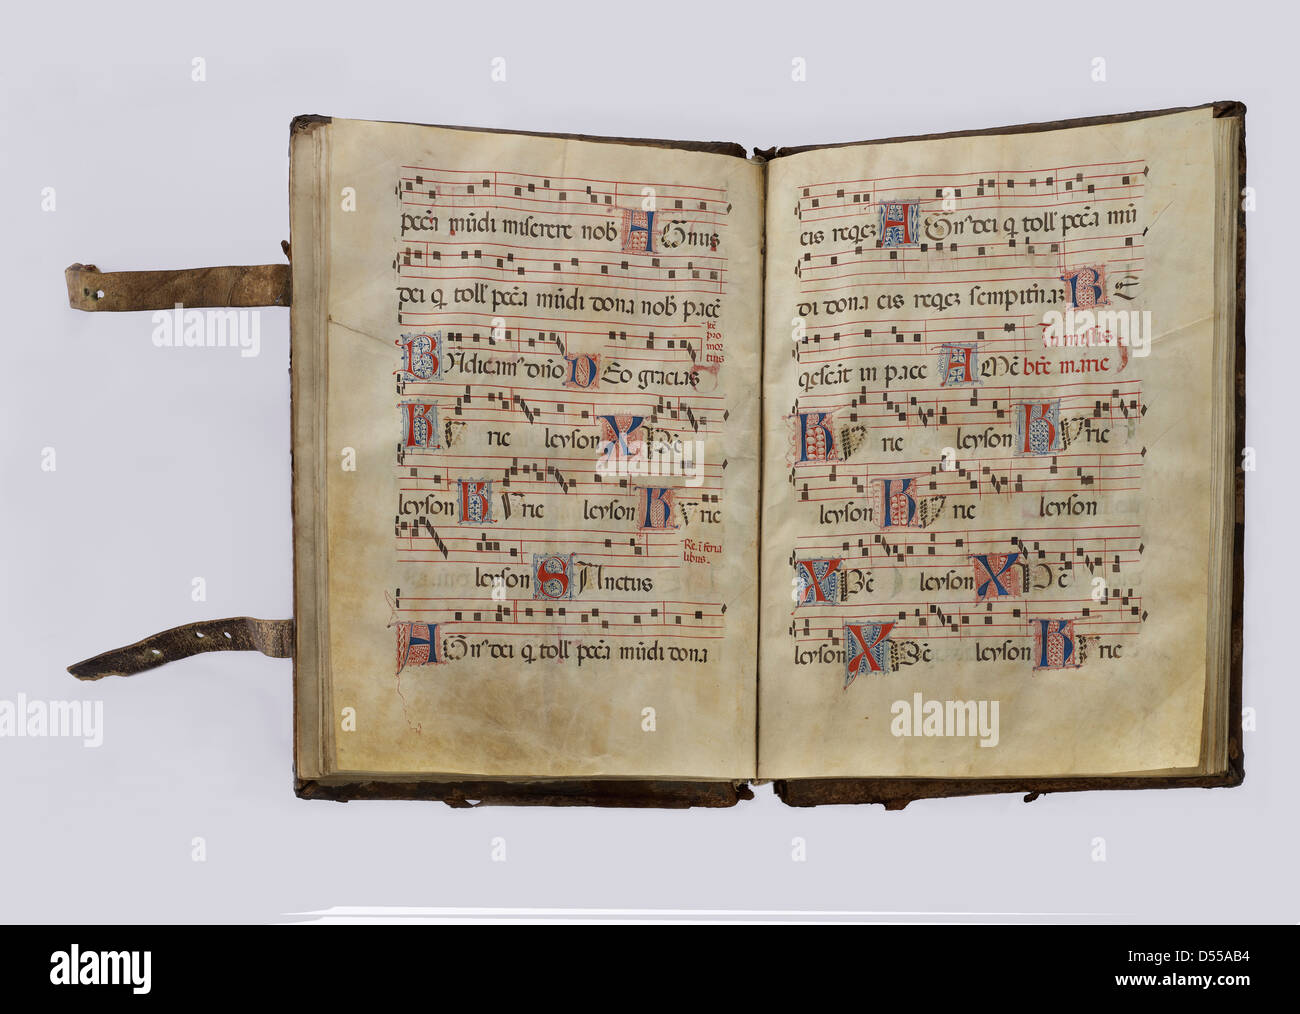 pecc̄a mūdi miserere nob Agnus
dei q̄ toll' pecc̄a mūdi dona nob pacē
Itē pro mortuis
Bn̄dicamꝰ dn̄o Deo gracias
Kyrie leyson Xp̄e
leyson Kyrie leyson Kyrie
Re. ī feria libus.
leyson Sanctus
Agnꝰ dei q̄ toll' pecc̄a mūdi dona
eis reqēz Agnꝰ dei q̄ toll' pecc̄a mū
di dona eis reqēz sempit̄naz RE
In missis
qescāt in pace Amē btē marie
Kyrie leyson Kyrie
leyson Kyrie leyson
Xp̄e leyson Xp̄e
leyson Xp̄e leyson Kyrie
alamy
alamy
Image ID: D55AB4
www.alamy.com